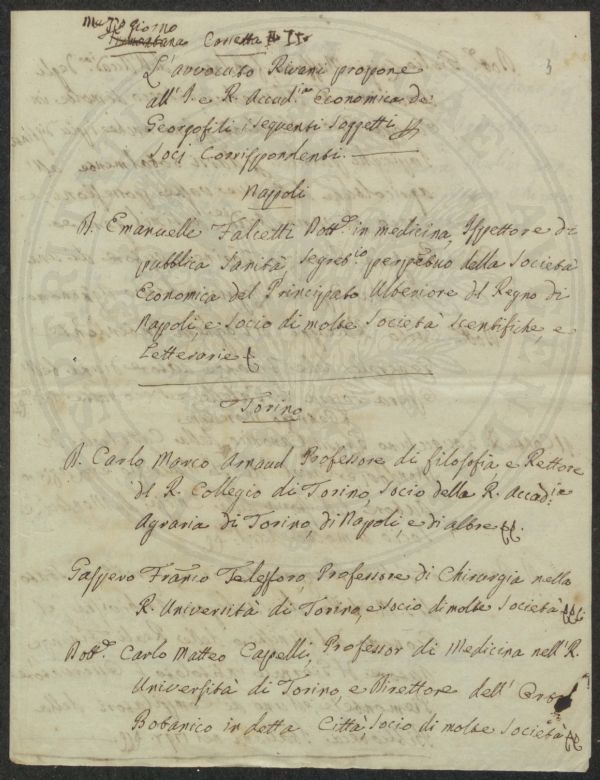 Giorno
Corretta
L'avvocato Rivani propone
all'I. e R. Accad.ia Economica de
Georgofili i seguenti soggetti
Socj Corrispondenti.
Napoli
D. Emanuelle Falcetti Dott.e in medicina, Ispettore di
pubblica Sanità, Segret.io perpetuo della Società
Economica del Principato Ulteriore del Regno di
Napoli, e socio di molte Società scentifiche, e
Letterarie
Torino
D. Carlo Marco Arnaud Professore di filosofia e Rettore
del R. Collegio di Torino, Socio della R. Accad.ia
Agraria di Torino, di Napoli, e di altre
Gaspero Franco Telesforo, Professore di Chirurgia nella
R. Università di Torino, e socio di molte Società
Dott.e Carlo Matteo Capelli, Professor di Medicina nell'R.
Università di Torino, e Direttore dell'Orto
Botanico in detta Città, Socio di molte Società